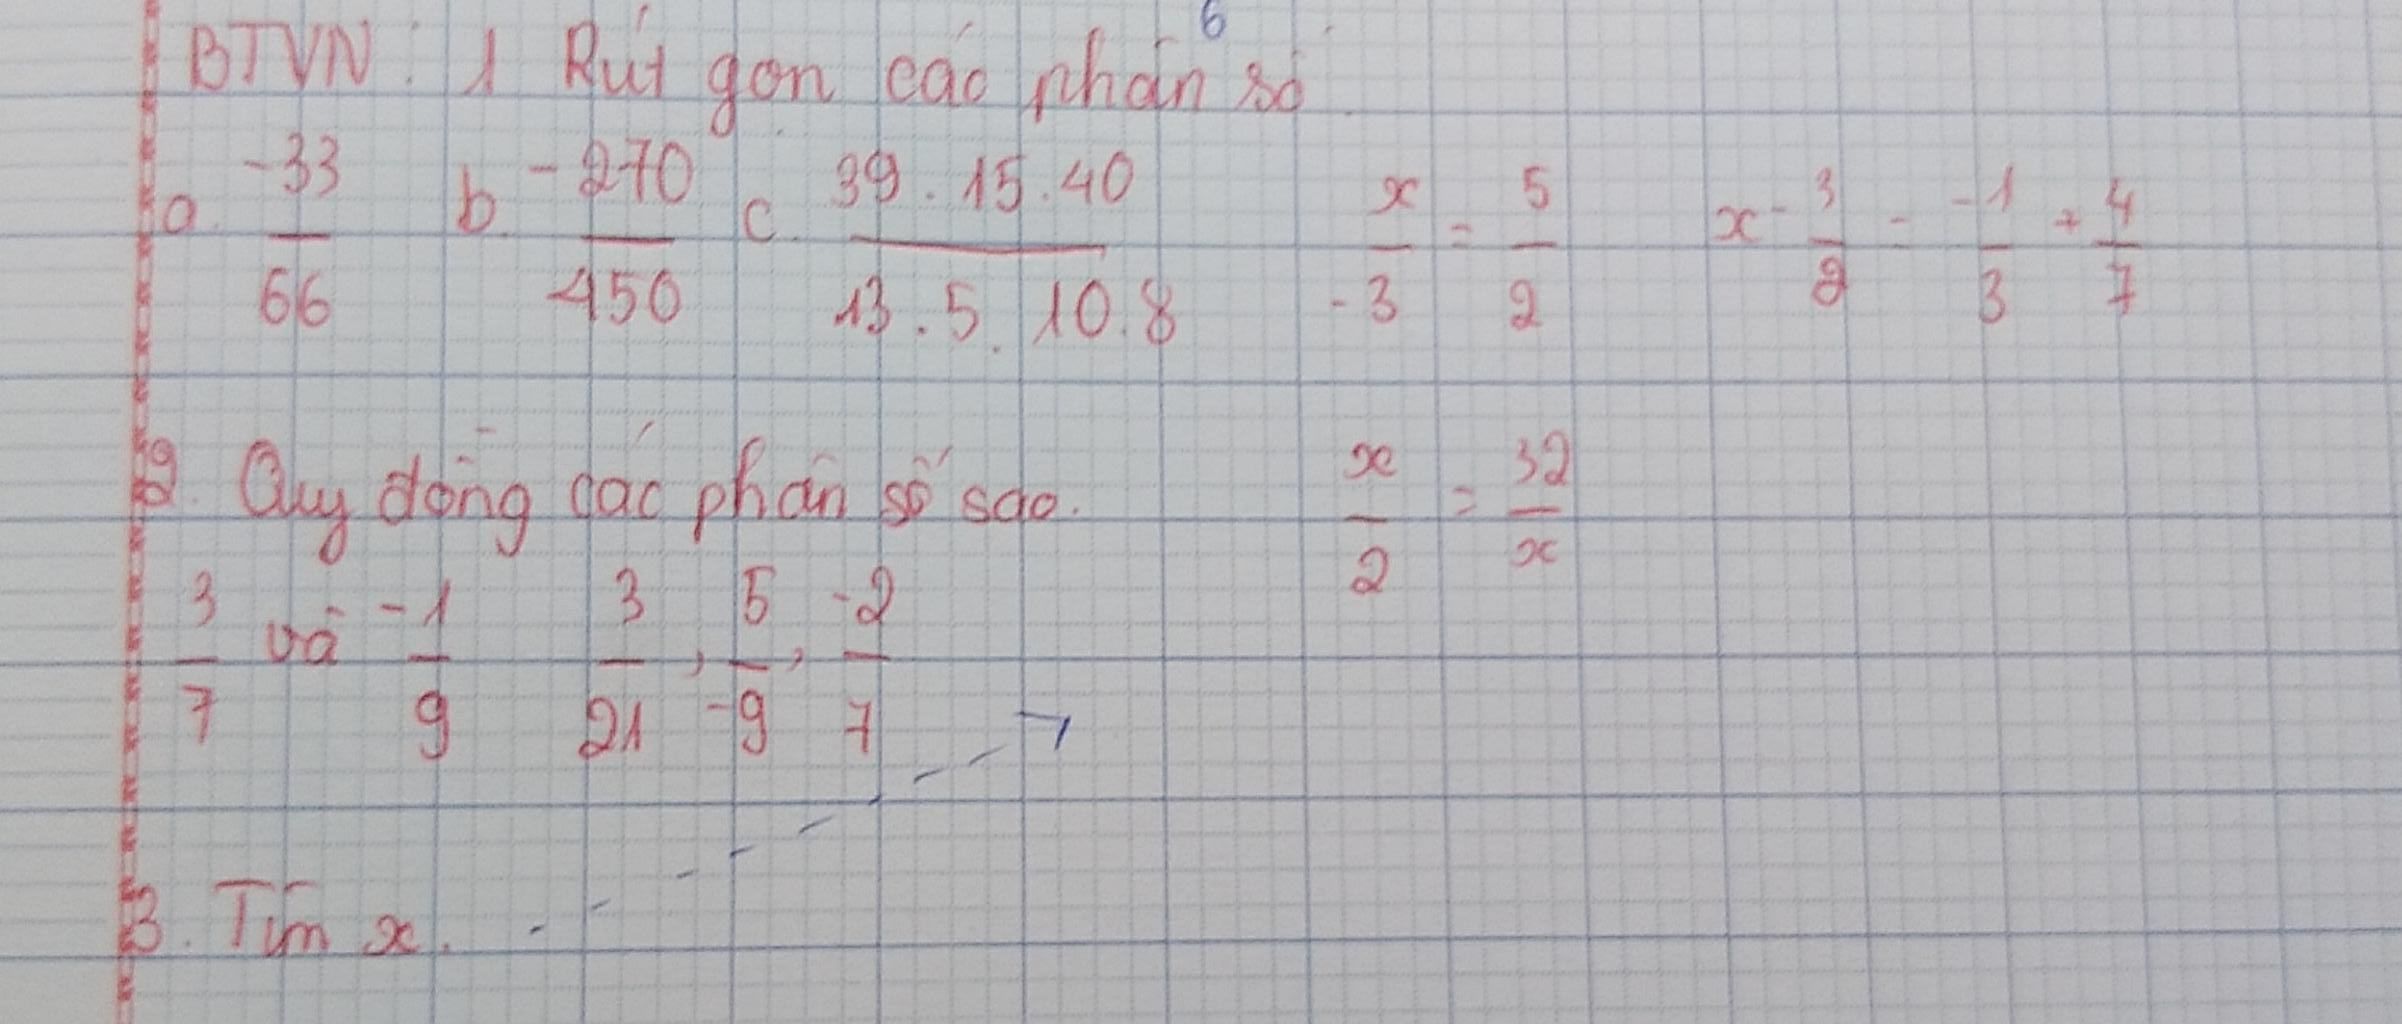 6
BTVN: 1 Rút gọn các phân số
a. -33/66 b. -270/450 c. 39.15.40/13.5.10.8 x/-3 = 5/2 x - 3/2 = -1/3 + 4/7
2. Quy đồng các phân số sao. x/2 = 32/x
3/7 và -1/9 3/21, 5/-9, -2/7
3. Tìm x.